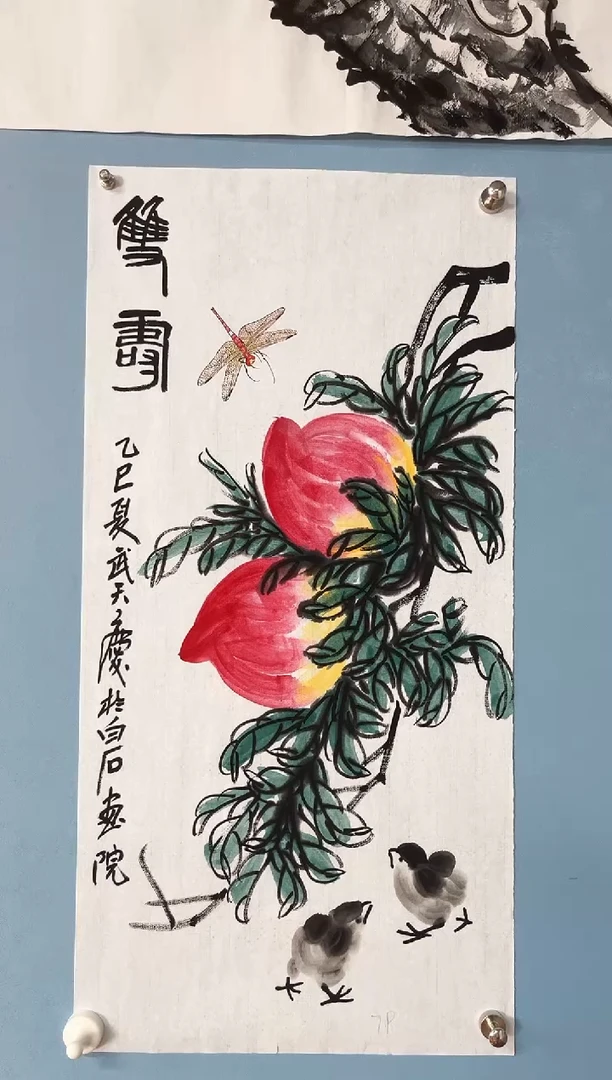 雙壽
乙巳夏武天慶於白石畫院